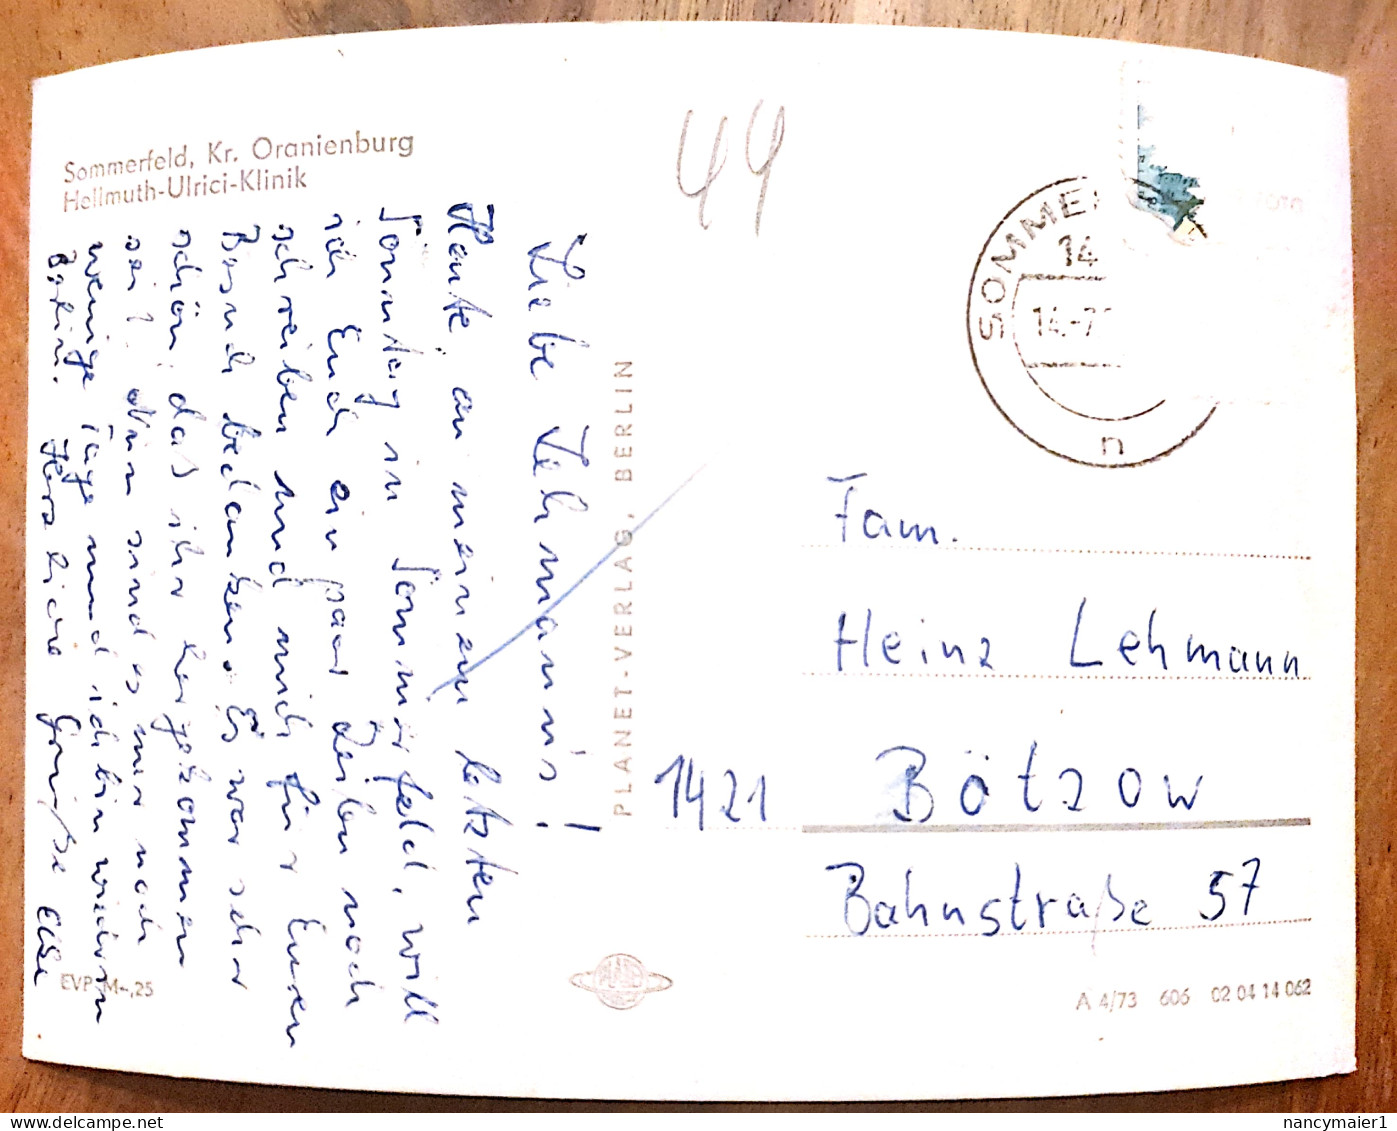 Sommerfeld, Kr. Oranienburg
Hellmuth-Ulrici-Klinik
Liebe Lehmann's!
Heute, an meinem letzten
Sonntag in Sommerfeld, will
ich Euch ein paar Zeilen noch
schreiben und mich für Euren
Besuch bedanken. Es war sehr
schön, das ihr hergekommen
seit. Nun sind es nur noch
wenige Tage und ich bin wieder in
Berlin. Herzliche Grüße Else
EVP M-,25
PLANET-VERLAG, BERLIN
44
SOMME
14
14.-7
n
Fam.
Heinz Lehmann
1421 Bötzow
Bahnstraße 57
A 4/73 606 02 04 14 062
delcampe.net
nancymaier1